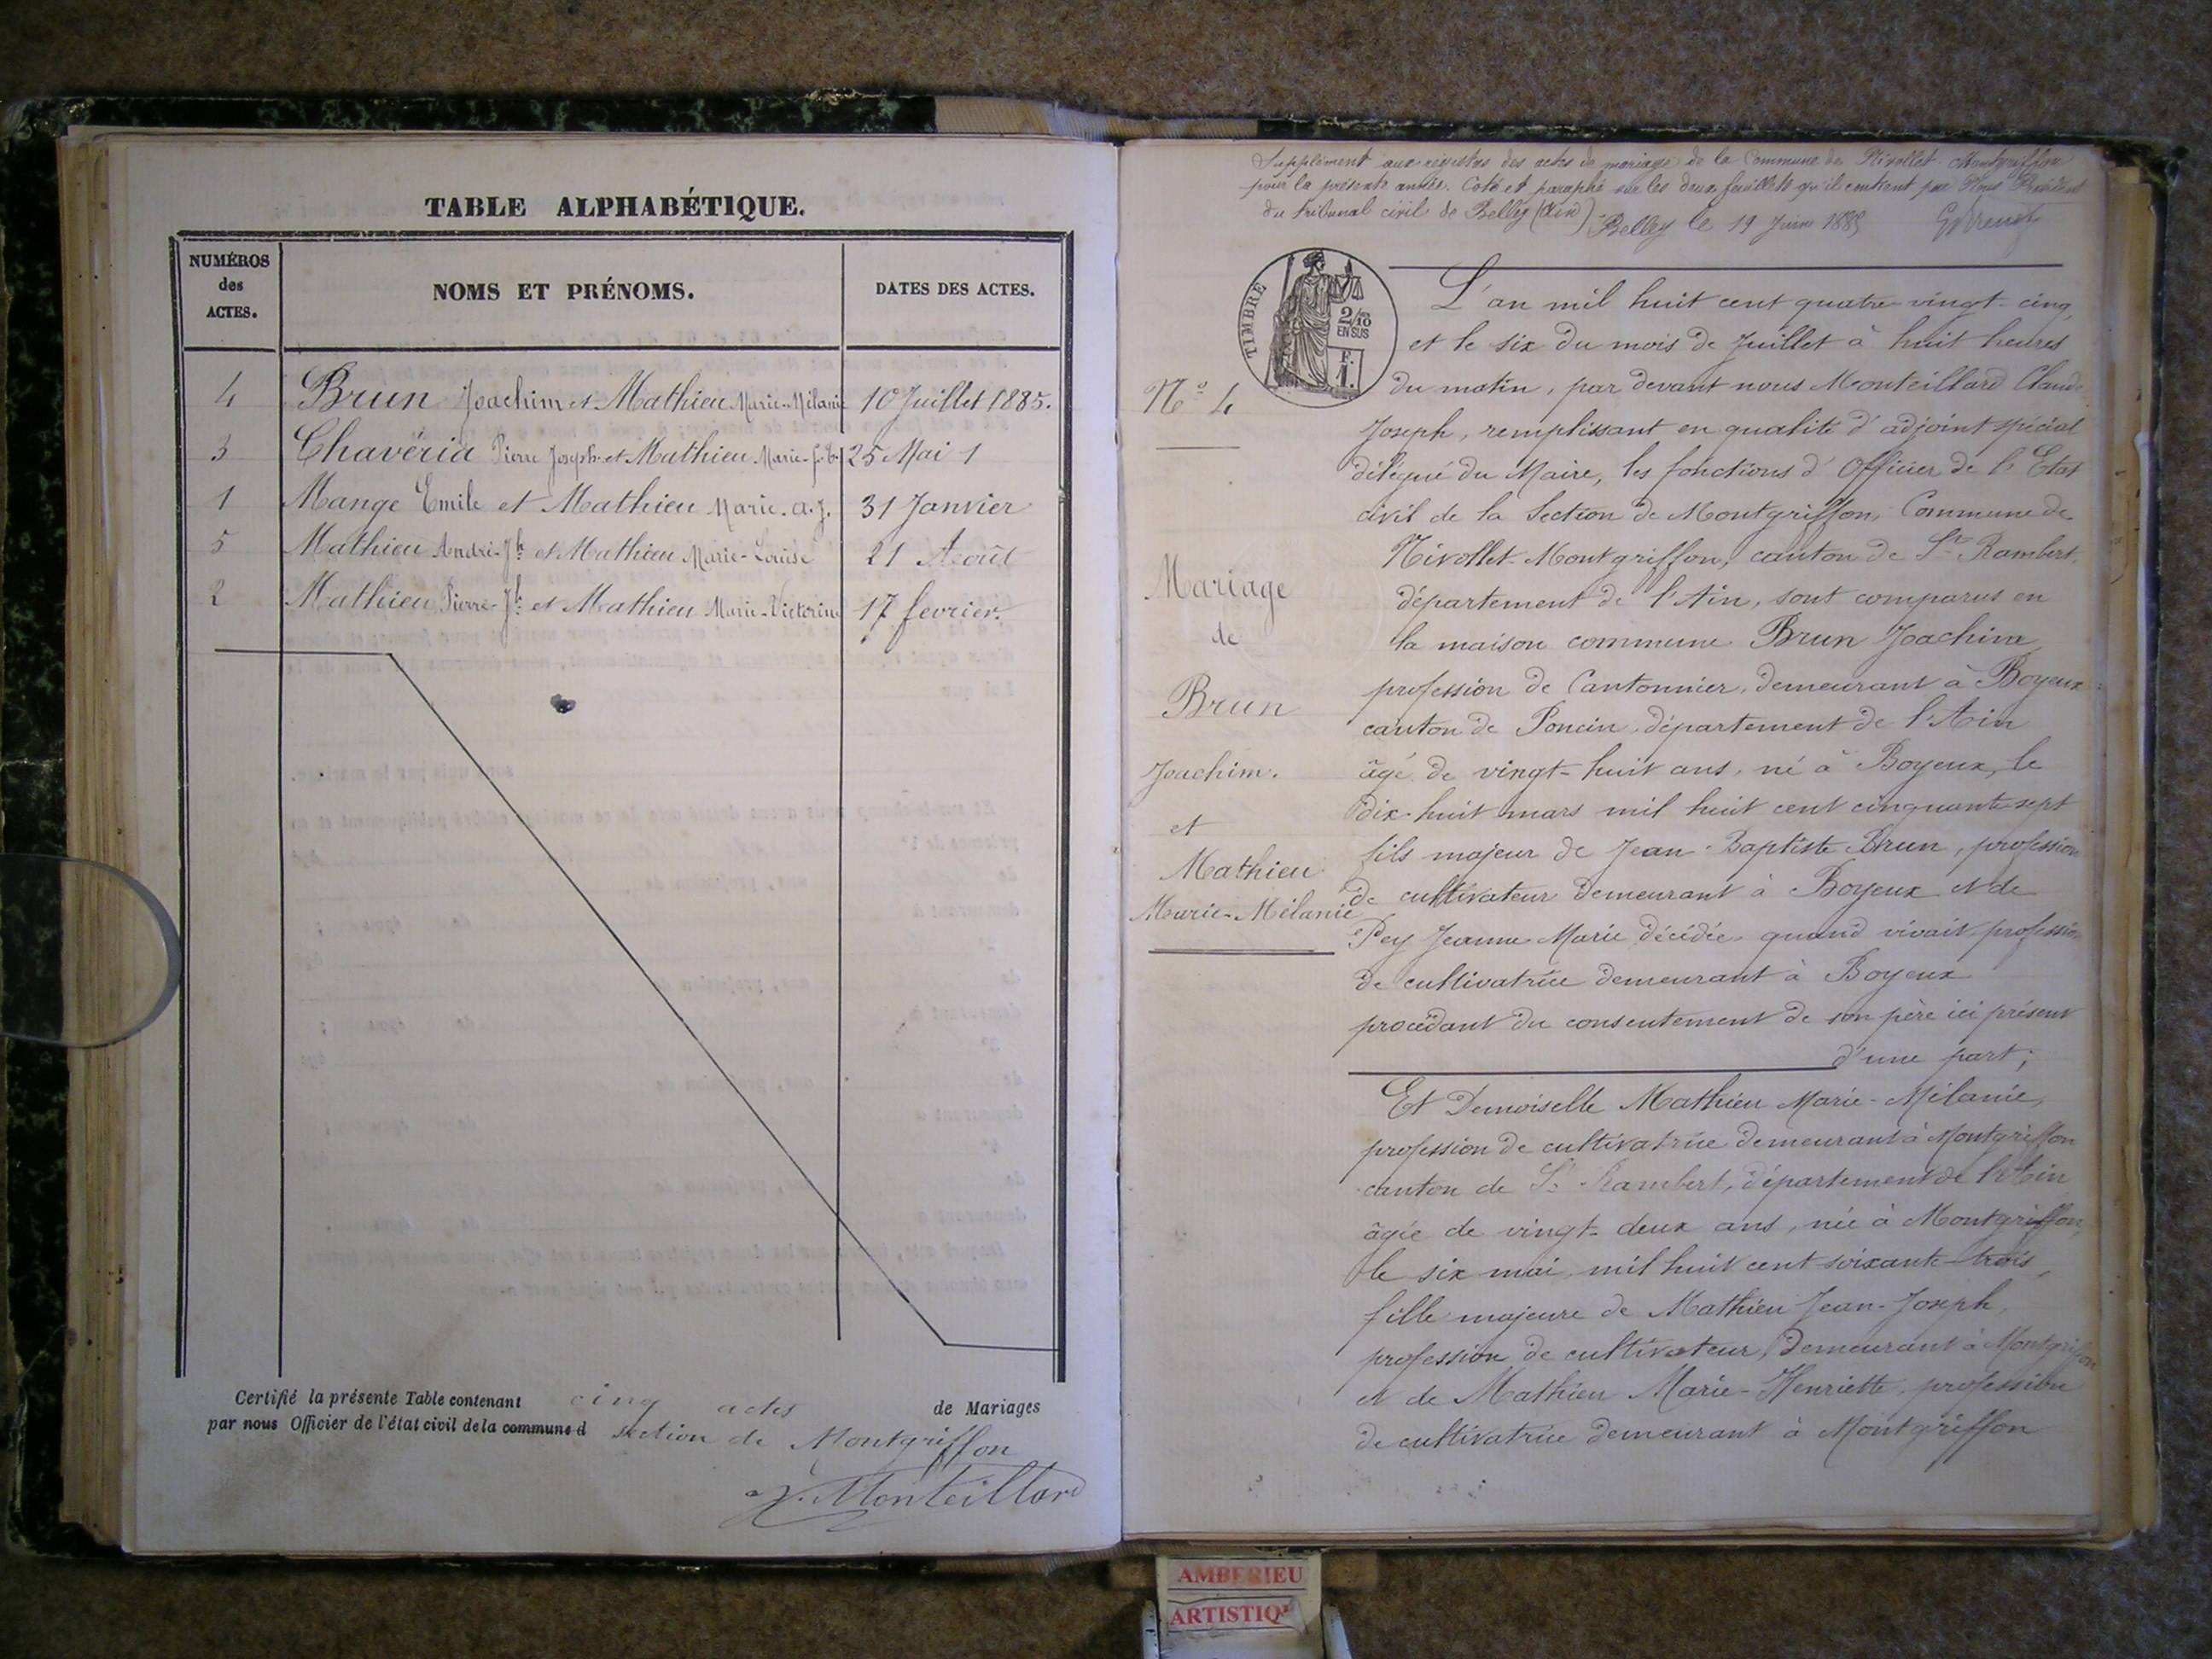 TABLE ALPHABÉTIQUE.
NUMÉROS
des
ACTES.
NOMS ET PRÉNOMS.
DATES DES ACTES.
4 Brun Joachim et Mathieu Marie-Mélanie 10 Juillet 1885.
3 Chavéria Pierre Joseph et Mathieu Marie 25 Mai
1 Mange Emile et Mathieu Marie. a. J. 31 Janvier
5 Mathieu André-Jh et Mathieu Marie-Louise 21 Août
2 Mathieu Pierre-Jh et Mathieu Marie-Victorine 17 fevrier.
Certifié la présente Table contenant cinq actes de Mariages
par nous Officier de l'état civil de la commune d section de Montgriffon
J. Monteillard
Supplément aux registres des actes de mariages de la Commune de Nivollet-Montgriffon
pour la présente année. Coté et paraphé sur les deux feuillets qu'il contient par Nous Président
du tribunal civil de Belley (Ain)
Belley le 19 Juin 1885
TIMBRE
2/10
EN SUS
F.
1.
L'an mil huit cent quatre-vingt-cinq
et le six du mois de Juillet à huit heures
No 4
du matin, par devant nous Monteillard Claude
Joseph, remplissant en qualité d'adjoint spécial
délégué du Maire, les fonctions d'Officier de l'Etat
civil de la Section de Montgriffon, Commune de
Nivollet-Montgriffon, canton de St Rambert,
Mariage
de
Brun
Joachim.
et
Mathieu
Marie-Mélanie
département de l'Ain, sont comparus en
la maison commune Brun Joachim
profession de Cantonnier, demeurant à Boyeux
canton de Poncin, département de l'Ain
âgé de vingt-huit ans, né à Boyeux, le
dix-huit mars mil huit cent cinquante sept
fils majeur de Jean-Baptiste Brun, profession
de cultivateur demeurant à Boyeux et de
Pey Jeanne Marie décédée, quand vivait, profession
de cultivatrice demeurant à Boyeux
procédant du consentement de son père ici présent
d'une part;
Et Demoiselle Mathieu Marie-Mélanie,
profession de cultivatrice demeurant à Montgriffon
canton de St Rambert, département de l'Ain
âgée de vingt-deux ans, née à Montgriffon,
le six mai mil huit cent soixante-trois,
fille majeure de Mathieu Jean-Joseph,
profession de cultivateur, demeurant à Montgriffon
et de Mathieu Marie-Henriette, profession
de cultivatrice demeurant à Montgriffon
AMBERIEU
ARTISTIQ